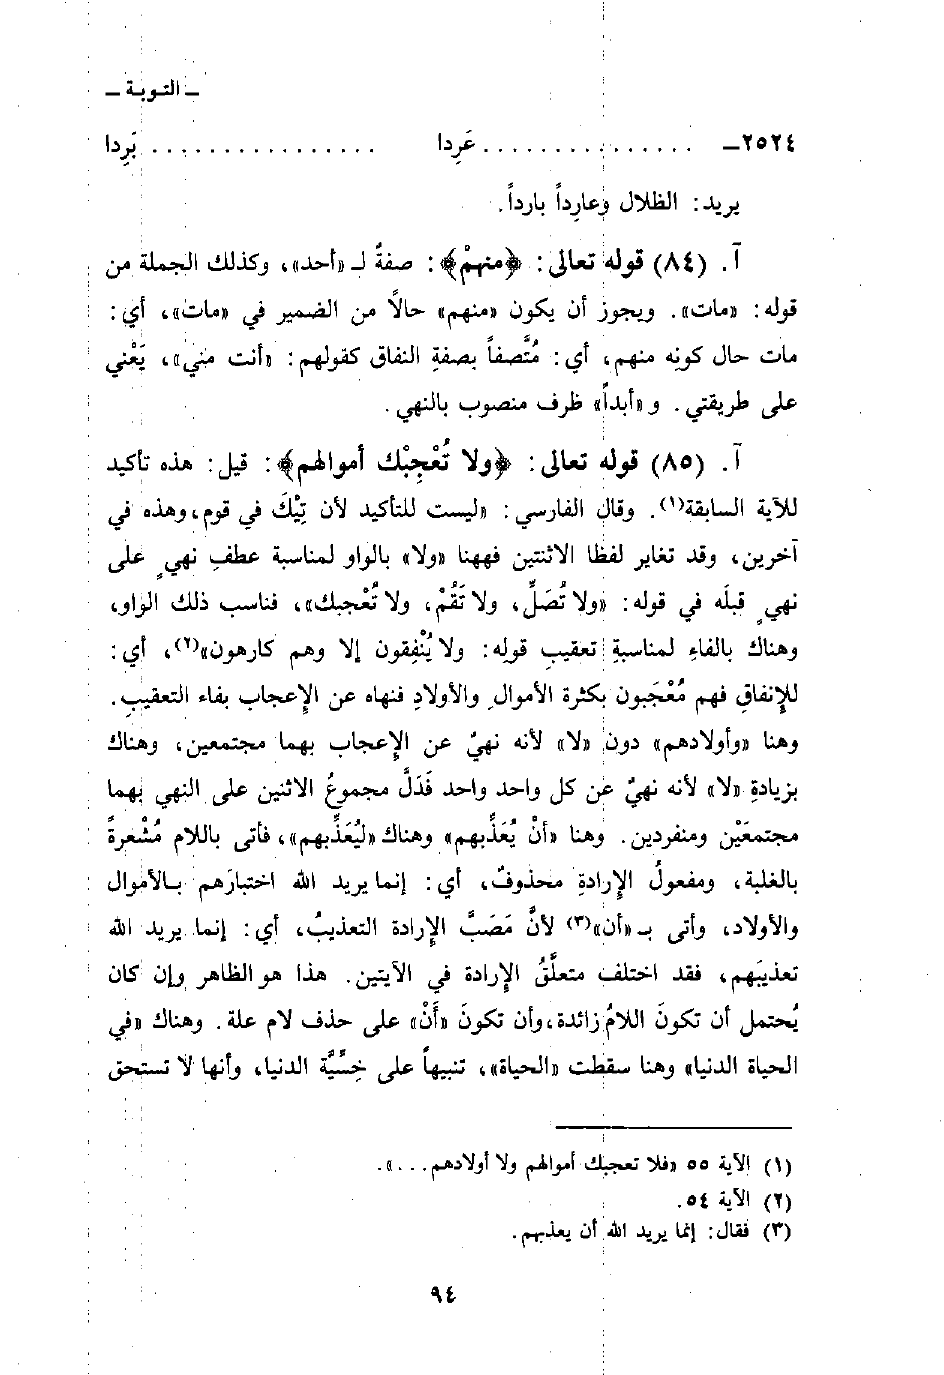 ـ التوبة ـ
٢٥٢٤ـ . . . . . . . . . . . . . . . عَرِدا . . . . . . . . . . . . . . . . بَرِدا
يريد: الظلال وعارِداً بارداً.
آ. (٨٤) قوله تعالى: ﴿منهمْ﴾: صفةٌ لـ «أحد»، وكذلك الجملة من
قوله: «مات». ويجوز أن يكون «منهم» حالاً من الضمير في «مات»، أي:
مات حال كونِه منهم، أي: مُتَّصفاً بصفةِ النفاق كقولهم: «أنت مني»، يَعْني
على طريقتي. و «أبداً» ظرف منصوب بالنهي.
آ. (٨٥) قوله تعالى: ﴿ولا تُعْجِبْك أموالهم﴾: قيل: هذه تأكيد
للآية السابقة(١). وقال الفارسي: «ليست للتأكيد لأن تِيْكَ في قوم، وهذه في
آخرين، وقد تغاير لفظا الاثنتين فههنا «ولا» بالواو لمناسبة عطفِ نهيٍ على
نهيٍ قبلَه في قوله: «ولا تُصَلِّ، ولا تَقُمْ، ولا تُعْجبك»، فناسب ذلك الواو،
وهناك بالفاءِ لمناسبةِ تعقيبِ قولِه: ولا يُنْفِقون إلا وهم كارهون»(٢)، أي:
للإِنفاقِ فهم مُعْجَبون بكثرة الأموالِ والأولادِ فنهاه عن الإِعجاب بفاء التعقيبِ.
وهنا «وأولادهم» دون «لا» لأنه نهيٌ عن الإِعجاب بهما مجتمعين، وهناك
بزيادةِ «لا» لأنه نهيٌ عن كل واحد واحد فَدَلَّ مجموعُ الاثنين على النهي بهما
مجتمعَيْن ومنفردين. وهنا «أنْ يُعَذِّبهم» وهناك «ليُعَذِّبهم»، فأتى باللام مُشْعرةً
بالغلبة، ومفعولُ الإِرادةِ محذوفٌ، أي: إنما يريد الله اختبارَهم بالأموال
والأولاد، وأتى بـ «أن»(٣) لأنَّ مَصَبَّ الإِرادة التعذيبُ، أي: إنما يريد الله
تعذيبَهم، فقد اختلف متعلَّقُ الإِرادة في الآيتين. هذا هو الظاهر وإن كان
يُحتمل أن تكونَ اللامُ زائدة، وأن تكونَ «أَنْ» على حذف لام علة. وهناك «في
الحياة الدنيا» وهنا سقطت «الحياة»، تنبيهاً على خِسِّيَّة الدنيا، وأنها لا تستحق
(١) الآية ٥٥ «فلا تعجبك أموالهم ولا أولادهم...».
(٢) الآية ٥٤.
(٣) فقال: إنما يريد الله أن يعذبهم.
٩٤